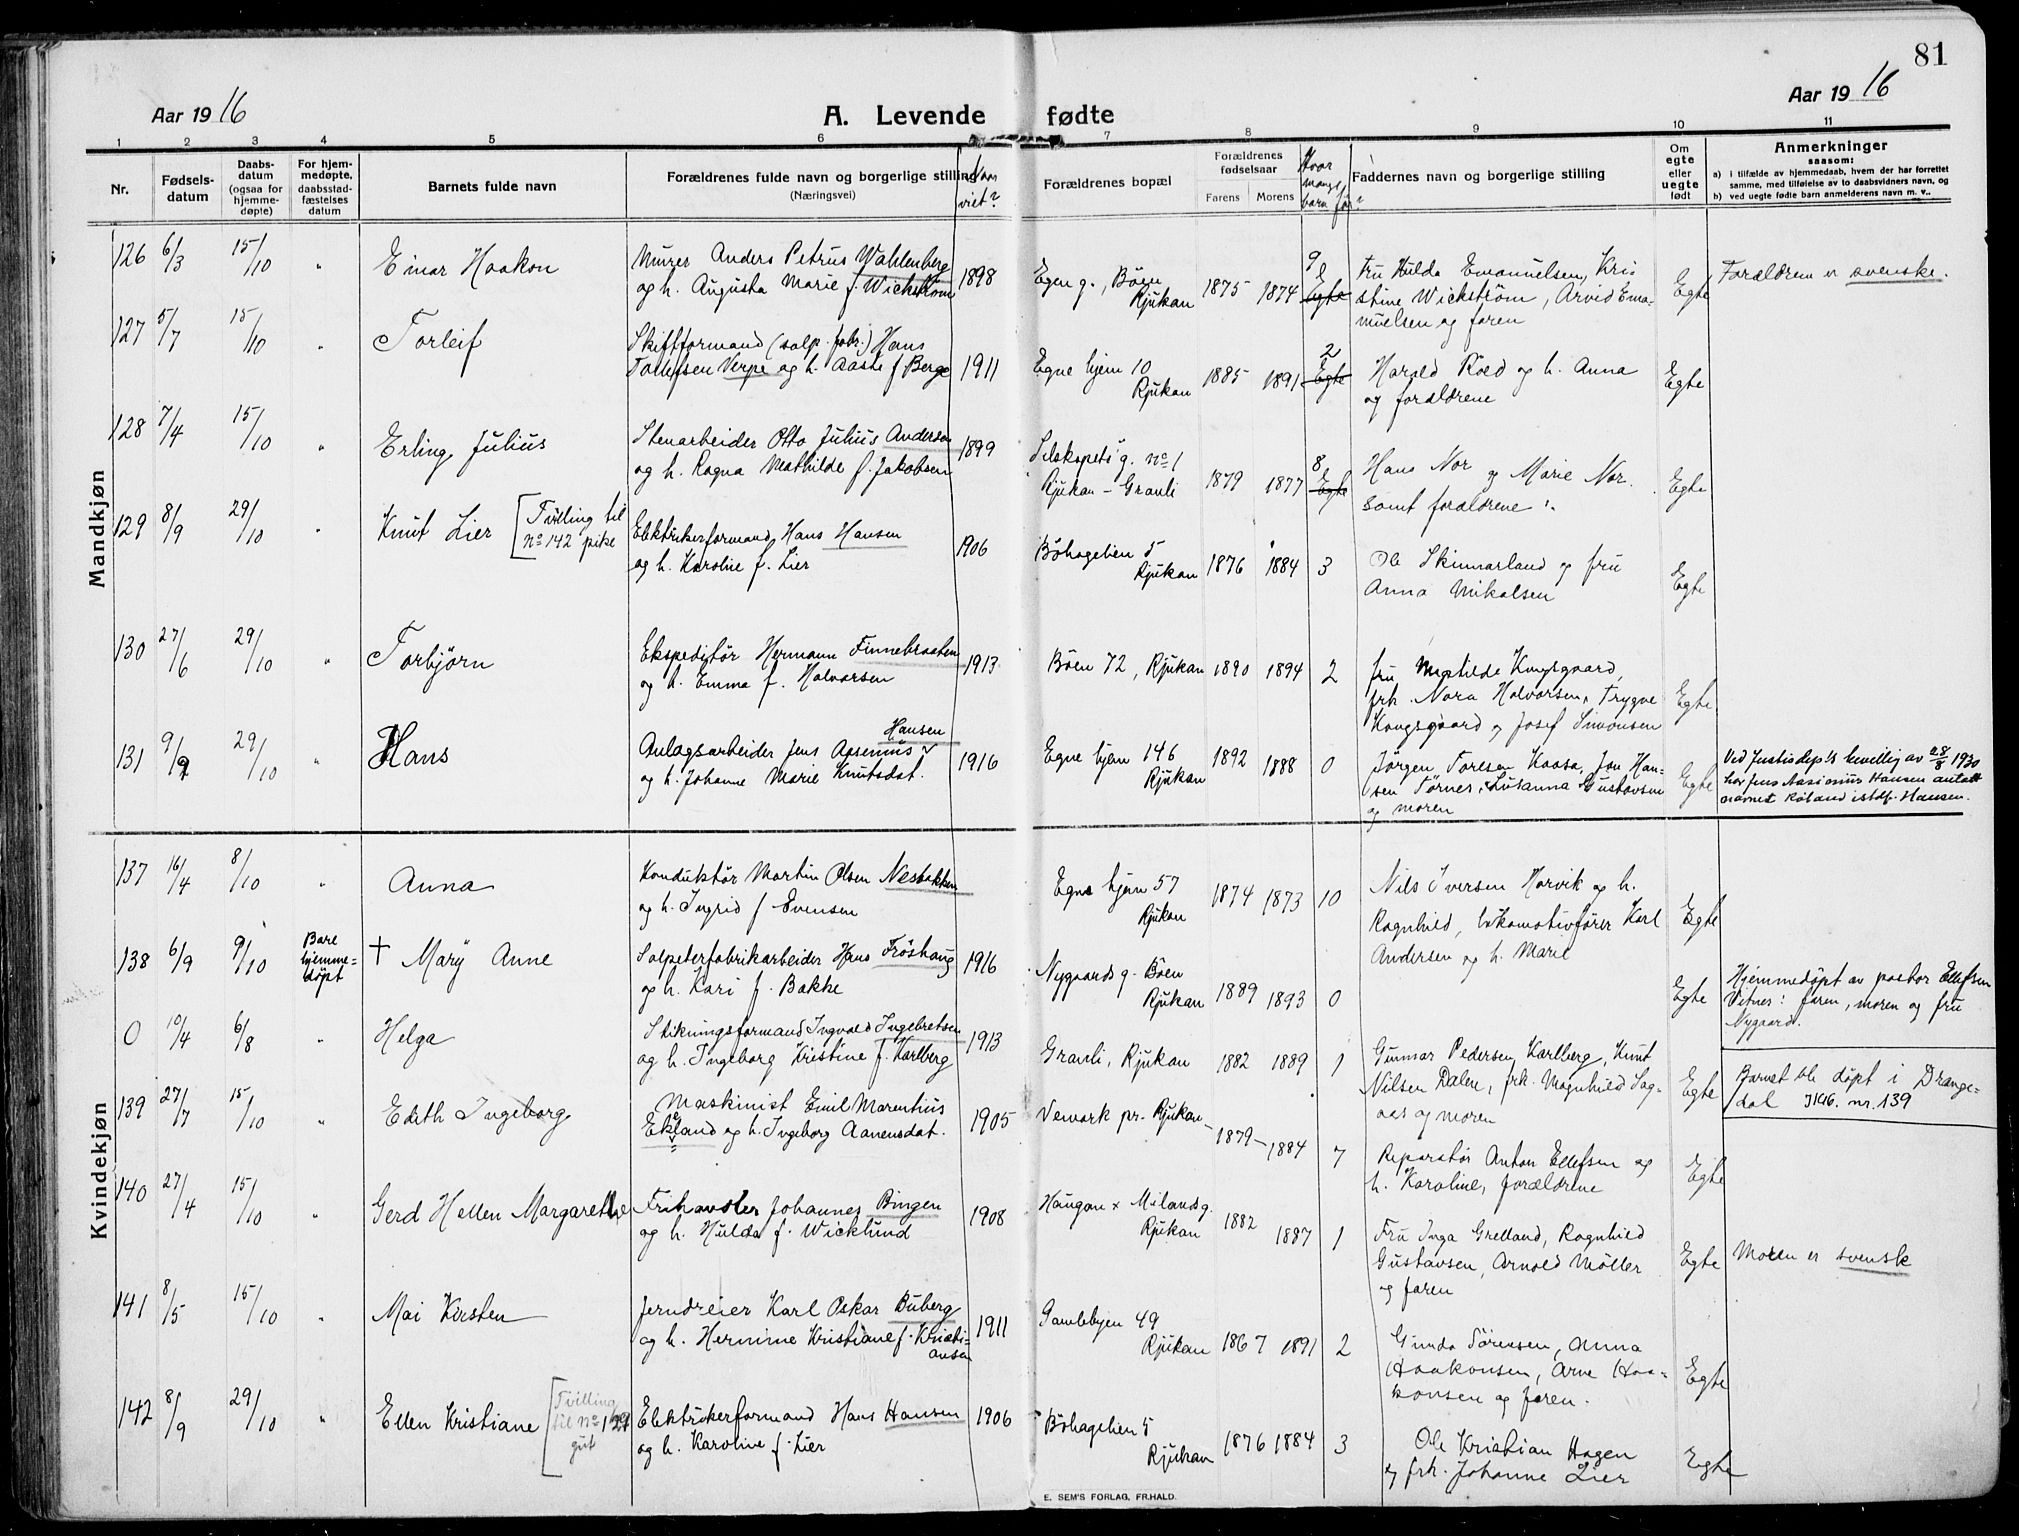 81
Aar 1916
A. Levende fødte
Aar 1916
1 2 3 4 5 6 7 8 9 10 11
Nr.
Fødsels-
datum
Daabs-
datum
(ogsaa for
hjemme-
døpte)
For hjem-
medøpte,
daabsstad-
fæstelses
datum
Barnets fulde navn
Forældrenes fulde navn og borgerlige stilling
(Næringsvei)
Naar
viet?
Forældrenes bopæl
Forældrenes
fødselsaar
Farens Morens
Hvor
mange
barn før?
Faddernes navn og borgerlige stilling
Om
egte
eller
uegte
født
Anmerkninger
saasom:
a) i tilfælde av hjemmedaab, hvem der har forrettet
samme, med tilføielse av to daabsvidners navn, og
b) ved uegte fødte barn anmelderens navn m. v..
Mandkjøn
126 6/3 15/10 " Einar Haakon
Murer Anders Petrus Wahlenberg
og h. Augusta Marie f. Wickstrøm
1898
Egen g., Bøen
Rjukan
1875 1874 9 Egte
Fru Hulda Emanuelsen, Kri
stine Wickstrøm, Arvid Ema-
nuelsen og faren
Egte
Forældrene er svenske.
127 5/7 15/10 " Torleif
Skiftformand (salp. fabr.) Hans
Tollefsen Verpe og h. Aaste f Berge
1911
Egne hjem 10
Rjukan
1885 1891 2 Egte
Harald Roed og h. Anna
og forældrene
Egte
128 7/4 15/10 " Erling Julius
Stenarbeider Otto Julius Anderson
og h. Ragna Mathilde f. Jakobsen
1899
Selskapets g. no 1
Rjukan - Grauli
1879 1877 8 Egte
Hans Nor og Marie Nor
samt forældrene
Egte
129 8/9 29/10 " Knut Lier [Tvilling til
no 142 pike
Elektrikerformand Hans Hansen
og h. Karoline f. Lier
1906
Bøhagelien 5
Rjukan
1876 1884 3
Ole Skinnarland og fru
Anna Mikalsen
Egte
130 27/6 29/10 " Torbjörn
Ekspeditør Hermann Finnebraaten
og h. Emma f. Halvorsen
1913
Böen 72, Rjukan 1890 1894 2
fru Matilde Kongsgaard,
frk. Nora Halvorsen, Trygve
Kongsgaard og Josef Simonsen
Egte
131 9/9 29/10 " Hans
Hansen
Anlagsarbeider Jens Asenius
og h. Johanne Marie Knutsdat.
1916
Egne hjem 146
Rjukan
1892 1888 0
Jörgen Toresen Kaasa, Jon Han-
sen Tørnes, Susanna Gustavsen
og moren
Egte
Ved Justisdep.ts bevillig av 28/8 1930
har Jens Aasenius Hansen antatt
navnet Røland istdf. Hansen.
Kvindekjøn
137 16/4 8/10 " Anna
Konduktør Martin Olsen Nesbakken
og h. Ingrid f Evensen
Egne hjem 57
Rjukan
1874 1873 10
Nils Iversen Horvik og h.
Ragnhild, lokomotivfører Karl
Andersen og h. Marie
Egte
138 6/9 9/10 Bare
hjemme-
døpt
† Mary Anne
Salpeterfabrikarbeider Hans Fröshaug
og h. Kari f. Bakke
1916
Nygaards g. Böen
Rjukan
1889 1893 0
Egte
Hjemmedøpt av pastor Ellefsen
Vitner: faren, moren og fru
Nygaard.
0 10/4 6/8 " Helga
Stikningsformand Ingvald Ingebretsen
og h. Ingeborg Kristine f. Karlberg
1913
Grauli, Rjukan 1882 1889 1
Gunnar Pedersen Karlberg, Knut
Nilsen Dalen, frk. Magnhild Sag-
aas og moren
Egte
Barnet ble døpt i Drange-
dal 1916. nr. 139
139 27/7 15/10 " Edith Ingeborg
Maskinist Emil Marentius
Ekland og h. Ingeborg Aanensdat.
1905
Vemork pr. Rjukan
1879 1884 7
Reparatør Anton Ellefsen og
h. Karoline, forældrene
Egte
140 27/4 15/10 " Gerd Hellen Margarethe
Frihandler Johannes Bingen
og h. Hulda f. Wicklund
1908
Haugan x Milandsg.
Rjukan
1882 1887 1
Fru Inga Grelland, Ragnhild
Gustavsen, Arnold Møller
og faren
Egte
Moren er svensk
141 8/5 15/10 " Mai Kirsten
Jerndreier Karl Oskar Buberg
og h. Hermine Kristiane f. Kristi-
ansen
1911
Gamlebyen 49
Rjukan
1867 1891 2
Gunda Sörensen, Anna
Haakonsen, Arne Haa-
konsen og faren.
Egte
142 8/9 29/10 " Ellen Kristiane [Tvilling
til no 129
gut
Elektrikerformand Hans Hansen
og h. Karoline f. Lier
1906
Bøhagelien 5
Rjukan
1876 1884 3
Ole Kristian Hagen
og frk. Johanne Lier
Egte
E. SEM'S FORLAG, FR.HALD.